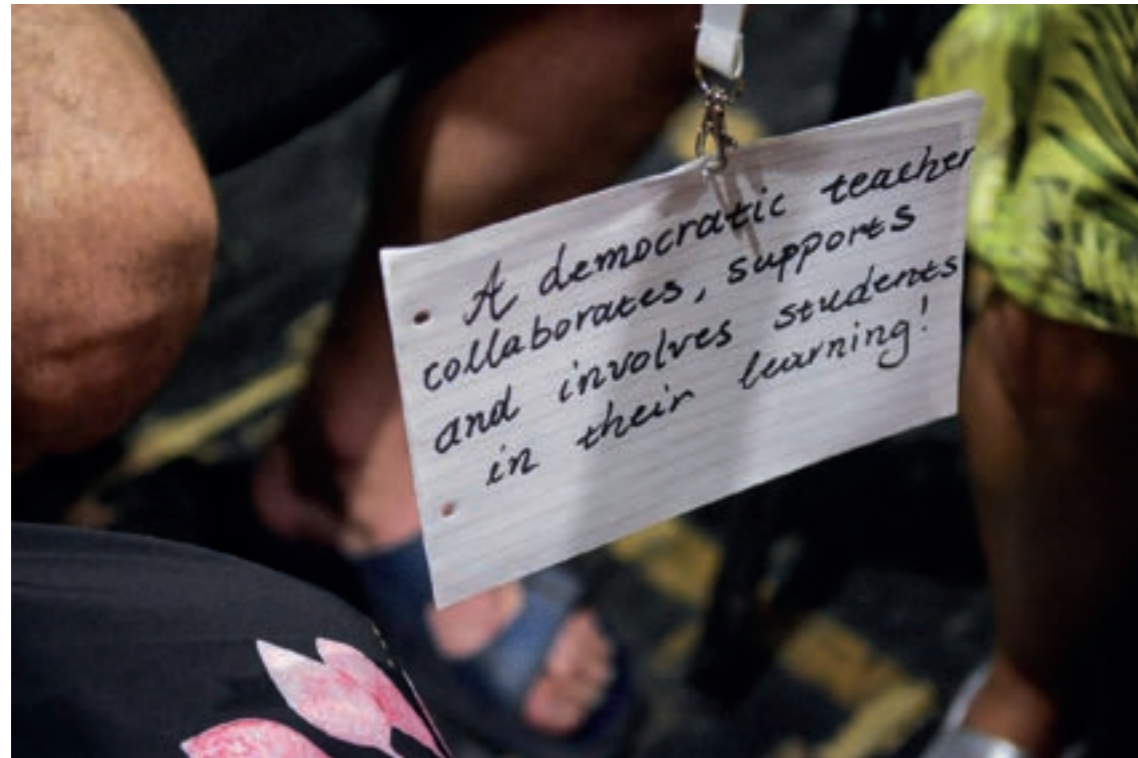 A democratic teacher
collaborates, supports
and involves students
in their learning!